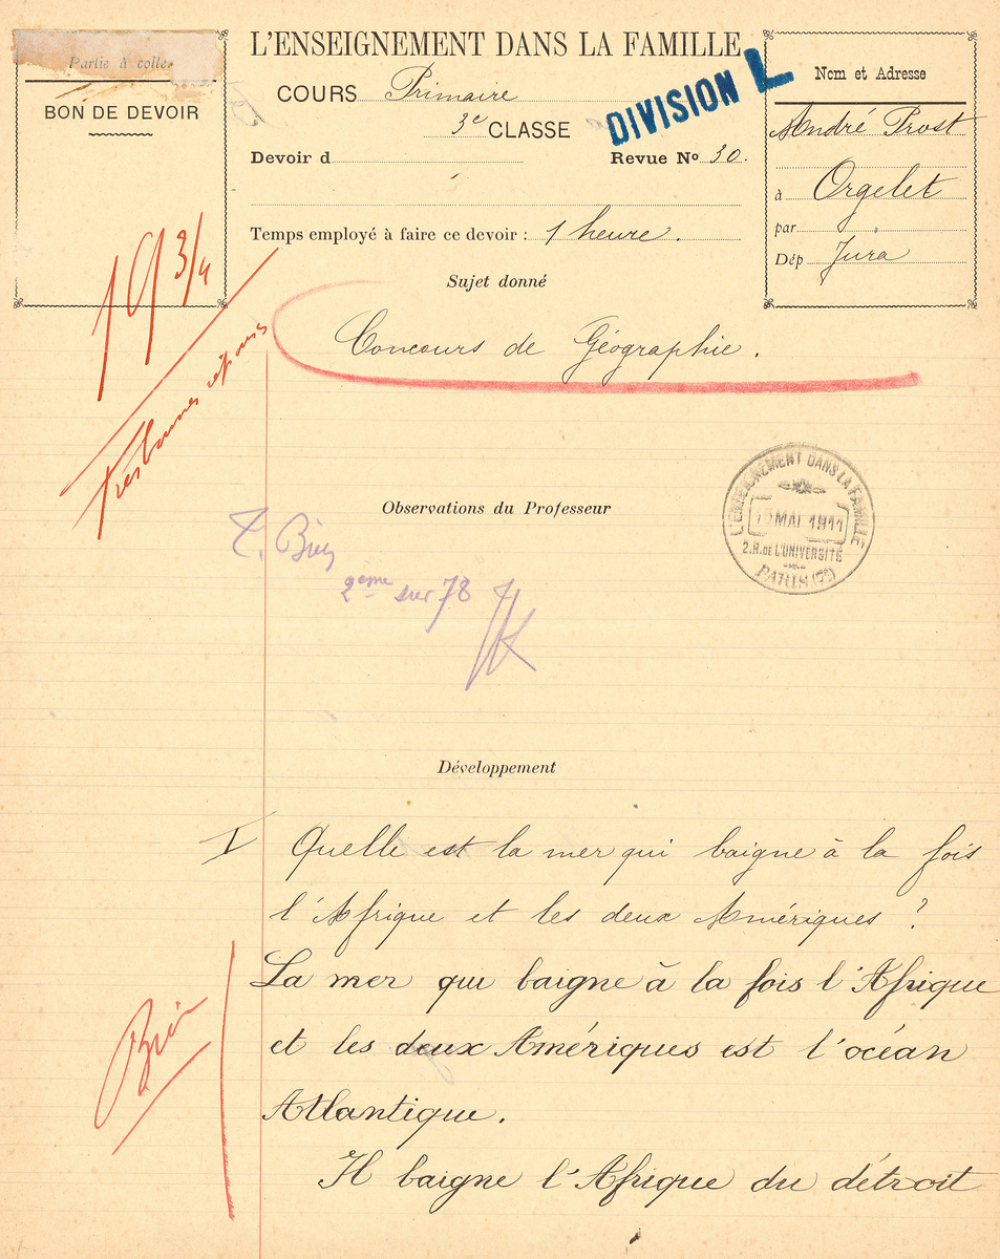 L'ENSEIGNEMENT DANS LA FAMILLE
Partie à coller
BON DE DEVOIR
COURS Primaire
3e CLASSE
DIVISION L
Devoir d
Revue No 30.
Temps employé à faire ce devoir : 1 heure.
Nom et Adresse
André Prost
à Orgelet
par
Dép Jura
19 3/4
Très bonnes
Sujet donné
Concours de Géographie.
Observations du Professeur
T. Bien
2eme sur 78
L'ENSEIGNEMENT DANS LA FAMILLE
MAI 1911
2.R. DE L'UNIVERSITÉ
PARIS (7e)
Développement
I Quelle est la mer qui baigne à la fois
l'Afrique et les deux Amériques ?
La mer qui baigne à la fois l'Afrique
et les deux Amériques est l'océan
Atlantique.
Bien
Il baigne l'Afrique du détroit